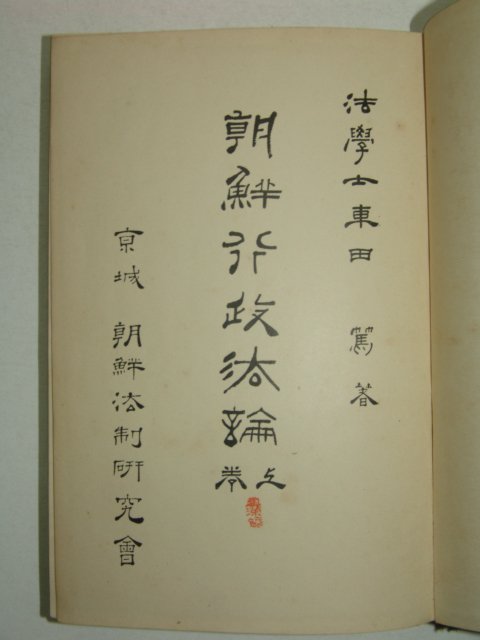 法學士車田 篤 著
朝鮮行政法論
上卷
京城 朝鮮法制研究會